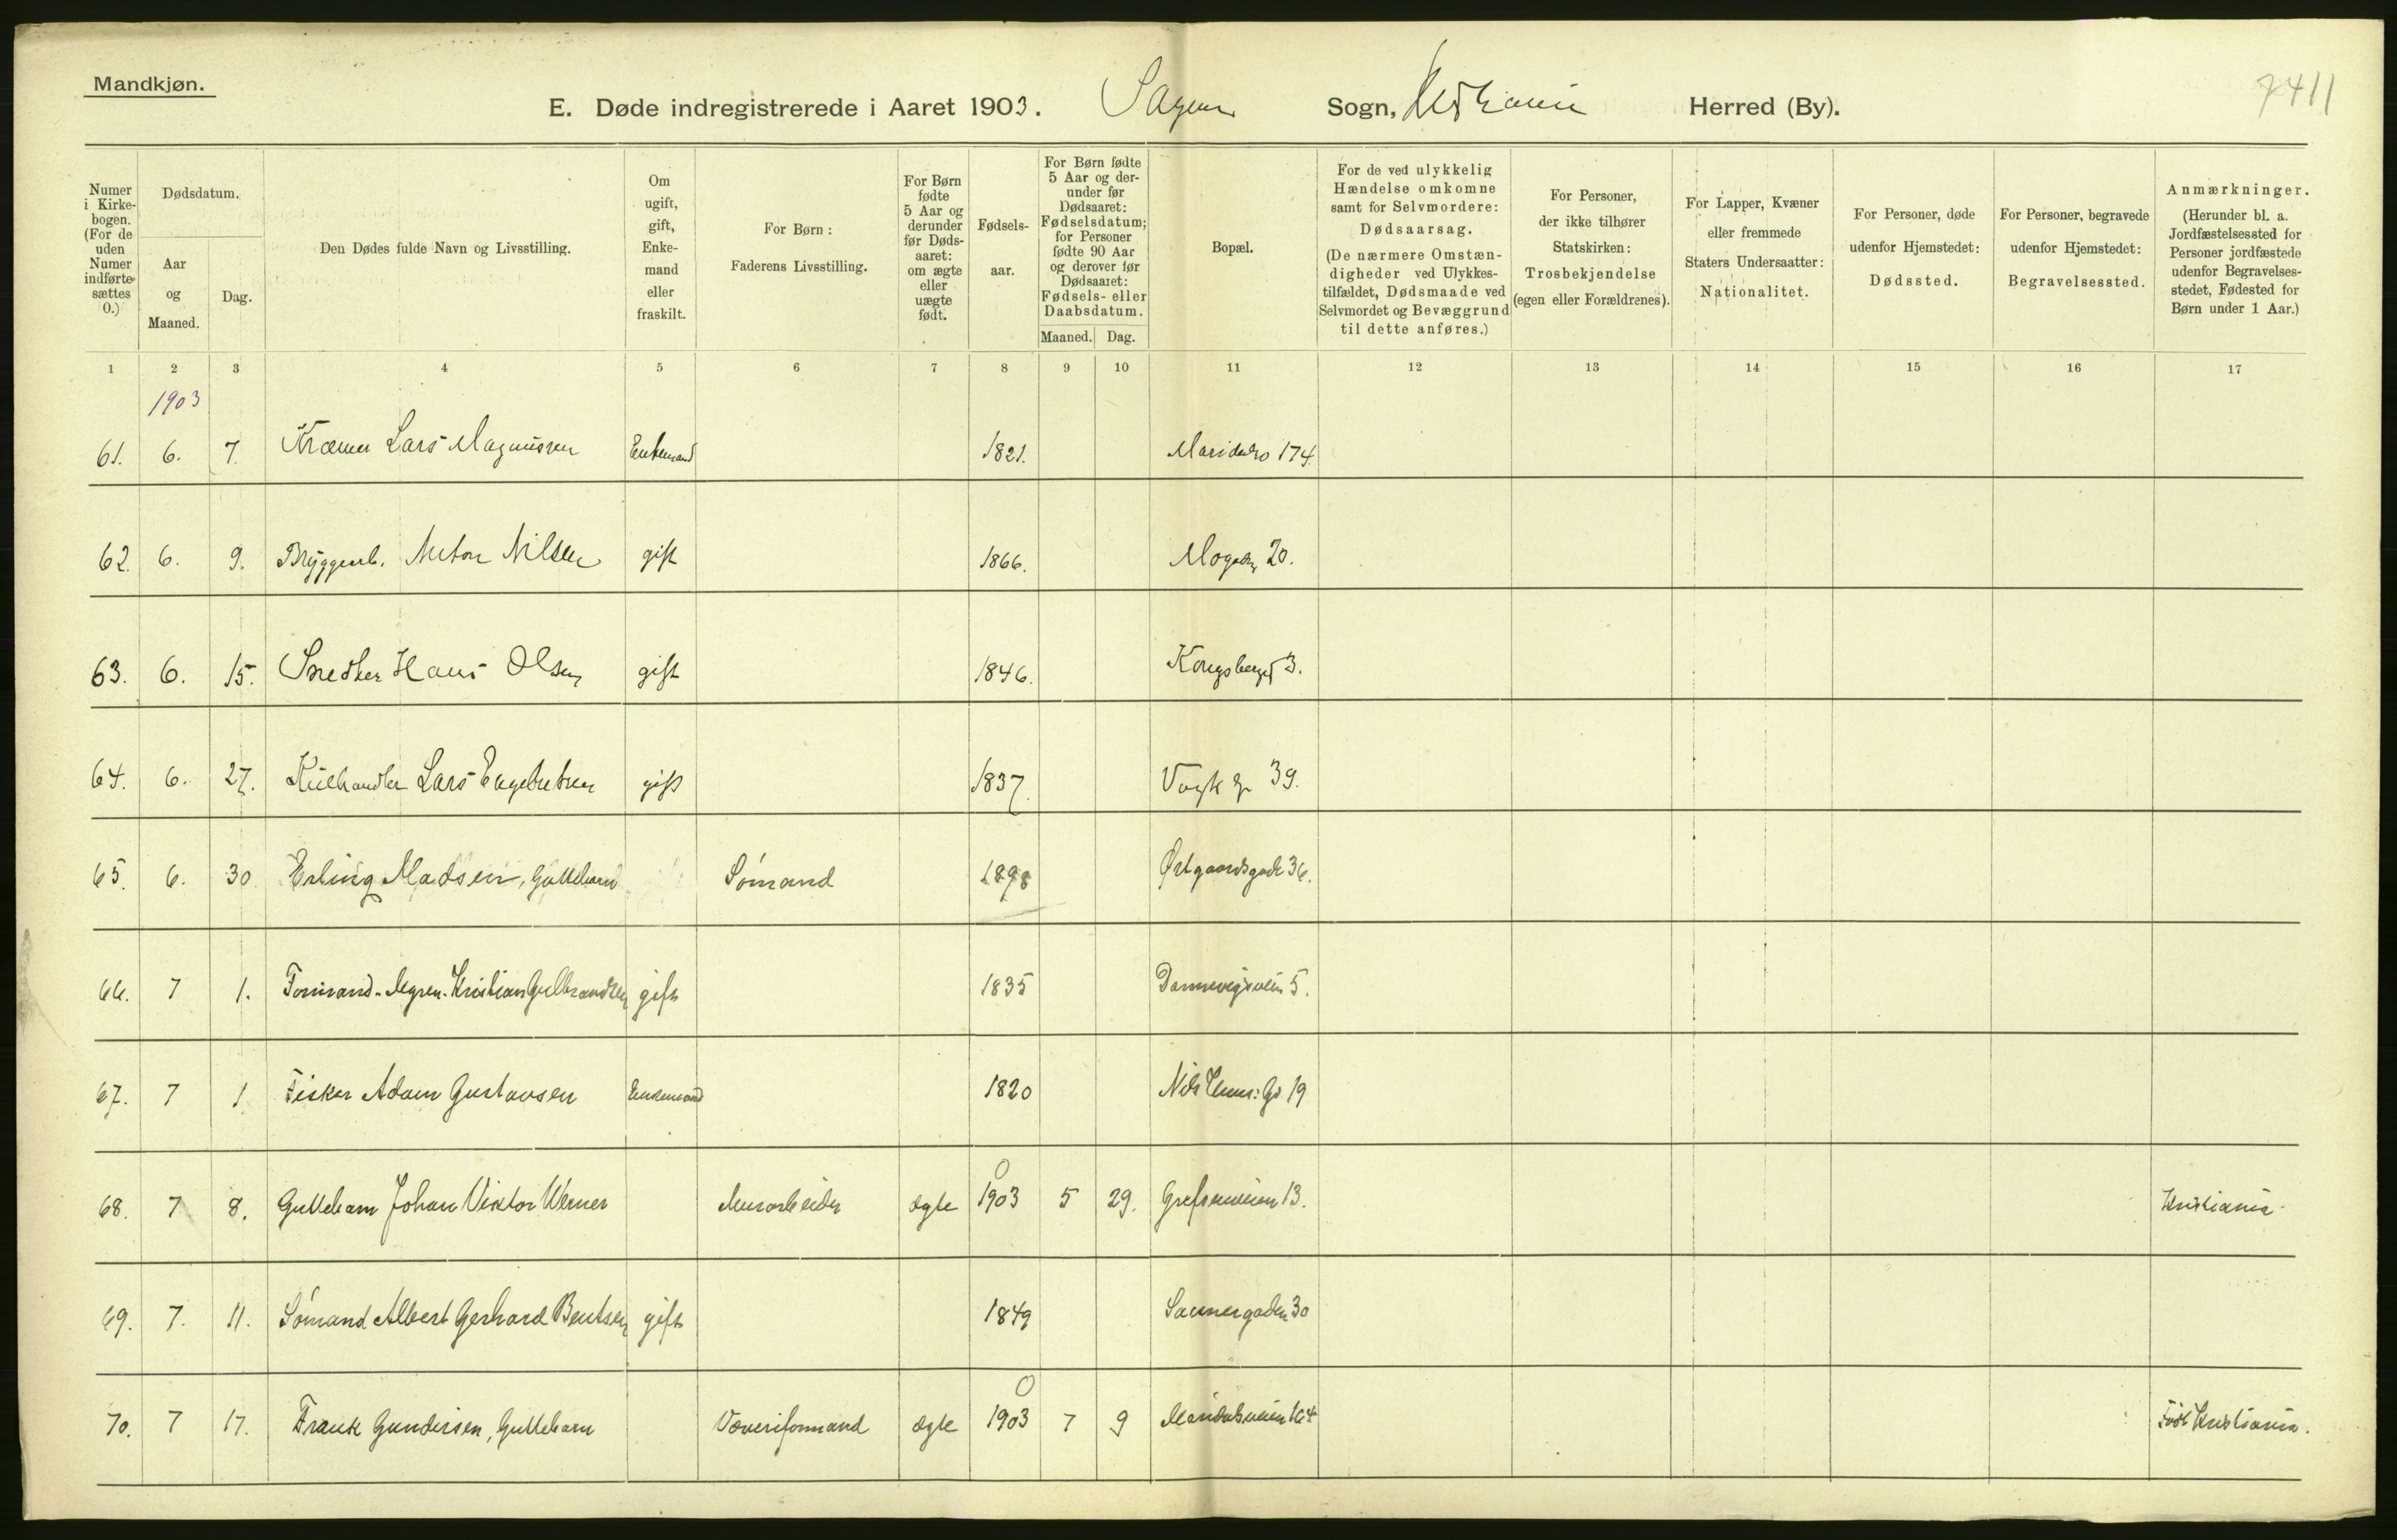 Mandkjøn.
7411
E. Døde indregistrerede i Aaret 1903. Sagene Sogn, Kristiania Herred (By).
Numer i Kirke-bogen. (For de uden Numer indførte sættes 0.)
Dødsdatum.
Aar og Maaned.
Dag.
Den Dødes fulde Navn og Livsstilling.
Om ugift, gift, Enke-mand eller fraskilt.
For Børn: Faderens Livsstilling.
For Børn fødte 5 Aar og derunder før Døds-aaret: om ægte eller uægte født.
Fødsels-aar.
For Børn fødte 5 Aar og der-under før Dødsaaret: Fødselsdatum; for Personer fødte 90 Aar og derover før Dødsaaret: Fødsels- eller Daabsdatum.
Maaned. Dag.
Bopæl.
For de ved ulykkelig Hændelse omkomne samt for Selvmordere: Dødsaarsag. (De nærmere Omstæn-digheder ved Ulykkes-tilfældet, Dødsmaade ved Selvmordet og Bevæggrund til dette anføres.)
For Personer, der ikke tilhører Statskirken: Trosbekjendelse (egen eller Forældrenes).
For Lapper, Kvæner eller fremmede Staters Undersaatter: Nationalitet.
For Personer, døde udenfor Hjemstedet: Dødssted.
For Personer, begravede udenfor Hjemstedet: Begravelsessted.
Anmærkninger. (Herunder bl. a. Jordfæstelsessted for Personer jordfæstede udenfor Begravelses-stedet, Fødested for Børn under 1 Aar.)
1 2 3 4 5 6 7 8 9 10 11 12 13 14 15 16 17
1903
61. 6. 7. Kræmer Lars Magnussen Enkemand 1821. 174.
62. 6. 9. Bryggearb. Anton Nilsen gift 1866. 20.
63. 6. 15. Snedker Hans Olsen gift 1846. Kongsbergg 3.
64. 6. 27. Kulhandler Lars Engebretsen gift 1837. Vogts g 39.
65. 6. 30. Erling Madsen, Guttebarn Sømand 1898 Østgaardsgade 36.
66. 7 1. Formand Kristian Gulbrandsen gift 1835 Dannevigsveien 5.
67. 7 1 Fisker Adam Gustavsen Enkemand 1820 Gd 19
68. 7 8. Guttebarn Johan Viktor Werner Murarbeider ægte 0 1903 5 29. Grefsenveien 13. Kristiania.
69. 7. 11. Sømand Albert Gerhard Bentsen gift 1849 Sannergaden 30
70. 7 17. Frank Gundersen, Guttebarn Væveriformand ægte 0 1903 7 9 Maridalsveien 164 Født Kristiania.